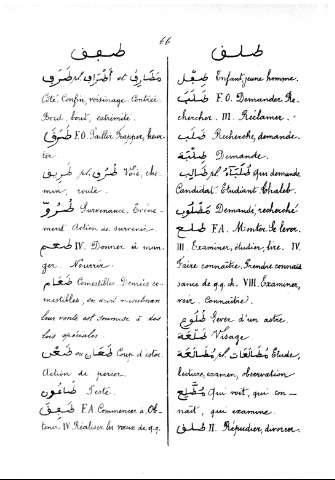 66
طفف
طرف pl. اطراف et مضارف
Côté. Confin, voisinage. Contrée.
Bord. bout, extrémité.
طرق F.O. Tailler. Frapper, heur
ter
طريق pl. طرق Voie, che
min, route.
طروّ Survenance. Evène
ment. Action de survenir.
طعم IV. Donner à man
ger. Nourrir.
طعام Comestibles. Denrées co
mestibles, en droit musulman
leur vente est soumise à des
lois spéciales.
طعن ou طعان Coup d'estoc
Action de percer.
طاعون Peste.
طفق F.A. Commencer à. Ob
tenir. IV. Réaliser les vœux de q.q.
طلف
طفل Enfant, jeune homme.
طلب F.O. Demander. Re
chercher. III. Réclamer.
طلب Recherche, demande.
طلبة Demande.
طالب pl. طلباء Qui demande
Candidat. Etudiant. Chaleb.
مطلوب Demandé, recherché
طلع F.A. Monter. Se lever.
III Examiner, étudier, lire. IV.
Faire connaître. Prendre connais
sance de q.q. ch. VIII. Examiner,
voir. Connaître.
طلوع Lever d'un astre.
طلعة Visage
مطالعة pl. مطالعات Etude,
lecture, examen, observation
مطّلع Qui voit, qui con-
naît, qui examine.
طلق II. Répudier, divorcer.